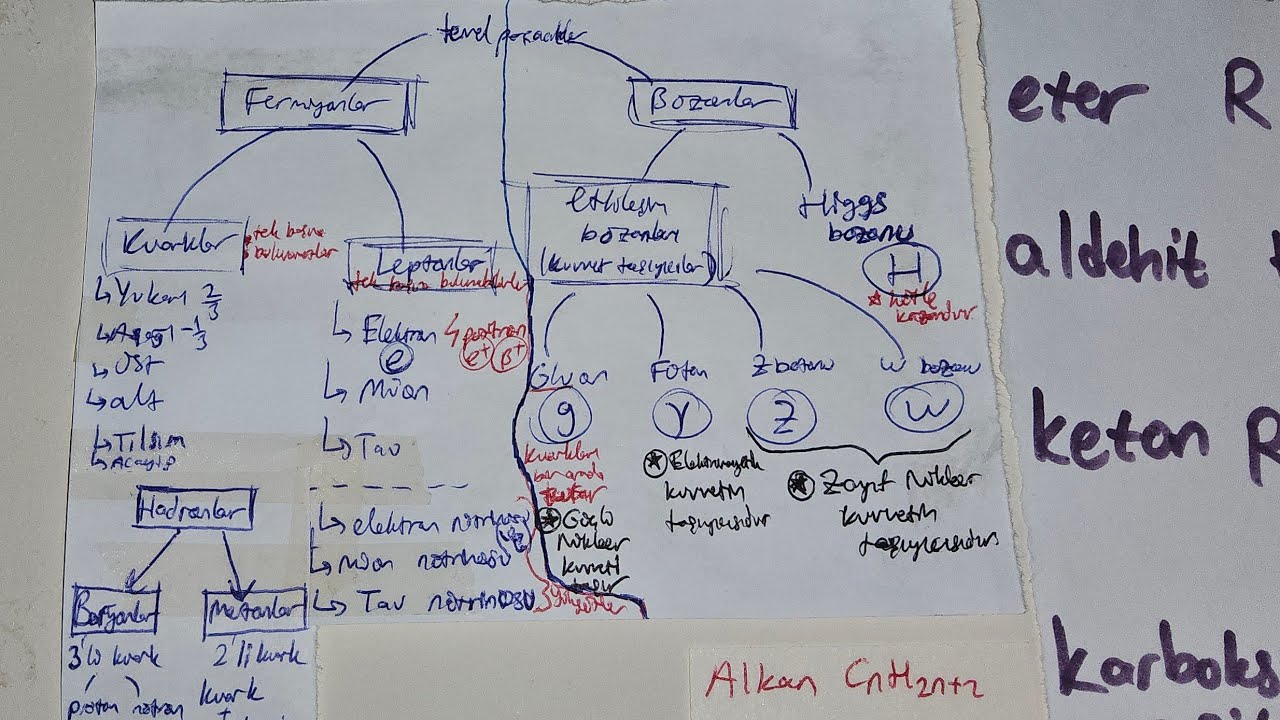 temel parçacıklar
Fermiyonlar
Bozonlar
Kuarklar
tek başına
bulunmazlar
Yukarı 2/3
Aşağı -1/3
Üst
alt
Tılsım
Acayip
Hadronlar
Baryonlar
3'lü kuark
proton nötron
Mezonlar
2'li kuark
kuark
+
Leptonlar
tek başına bulunabilirler
Elektron
e
pozitron
e+ β+
Müon
Tav
elektron nötrinosu
Müon nötrinosu
Tav nötrinosu
Etkileşim
bozonları
(kuvvet taşıyıcılar)
Higgs
bozonu
H
kütle
kazandırır
Gluon
g
Kuarkları
bir arada
tutar
Güçlü
Nükleer
kuvveti
taşır
Foton
γ
Elektromanyetik
kuvvetin
taşıyıcısıdır
Z bozonu
Z
W bozonu
W
Zayıf Nükleer
kuvvetin
taşıyıcısıdır
eter R
aldehit
keton R
karboks
Alkan CnH2n+2